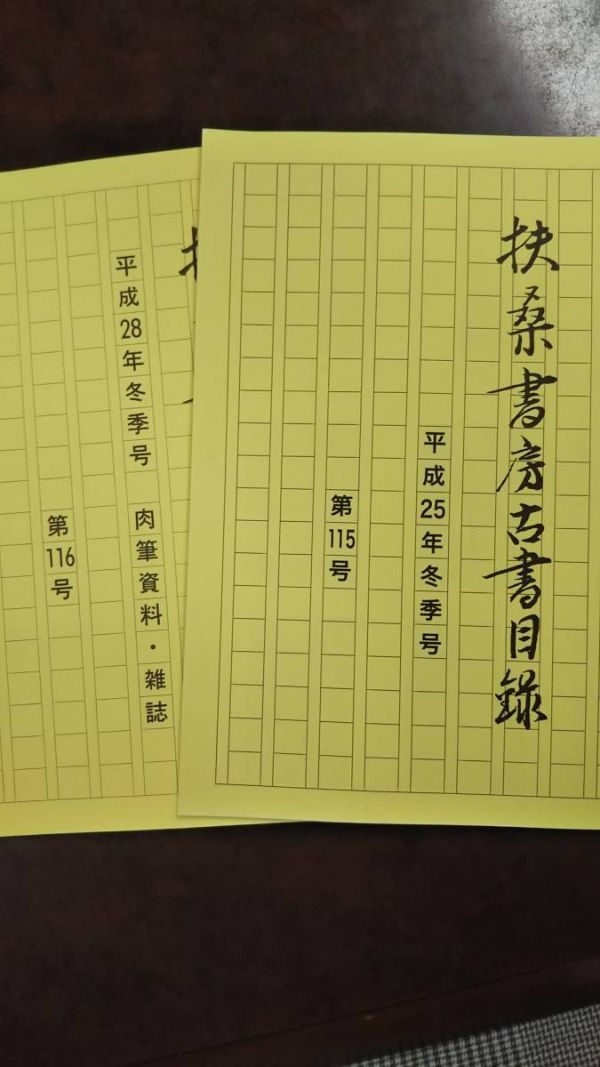 扶桑書房古書目録
平成25年冬季号
第115号
平成28年冬季号
肉筆資料・雑誌
第116号